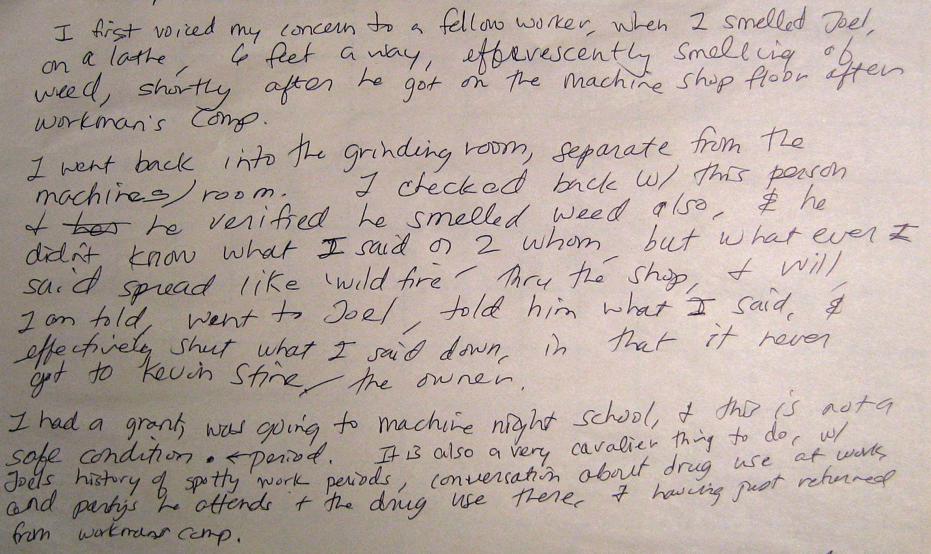 I first voiced my concern to a fellow worker, when I smelled Joel,
on a lathe, 6 feet away, effervescently smelling of
weed, shortly after he got on the machine shop floor after
workman's comp.
I went back into the grinding room, separate from the
machines/room. I checked back w/ this person
& he verified he smelled weed also, & he
didn't know what I said or 2 whom, but what ever I
said spread like 'wild fire' thru the shop, & Will,
I am told, went to Joel, told him what I said, &
effectively shut what I said down, in that it never
got to Kevin Stine, the owner.
I had a grant, was going to machine night school, & this is not a
safe condition . ← period. It is also a very cavalier thing to do, w/
Joels history of spotty work periods, conversation about drug use at work,
and partys he attends & the drug use there, & having just returned
from workmans comp.